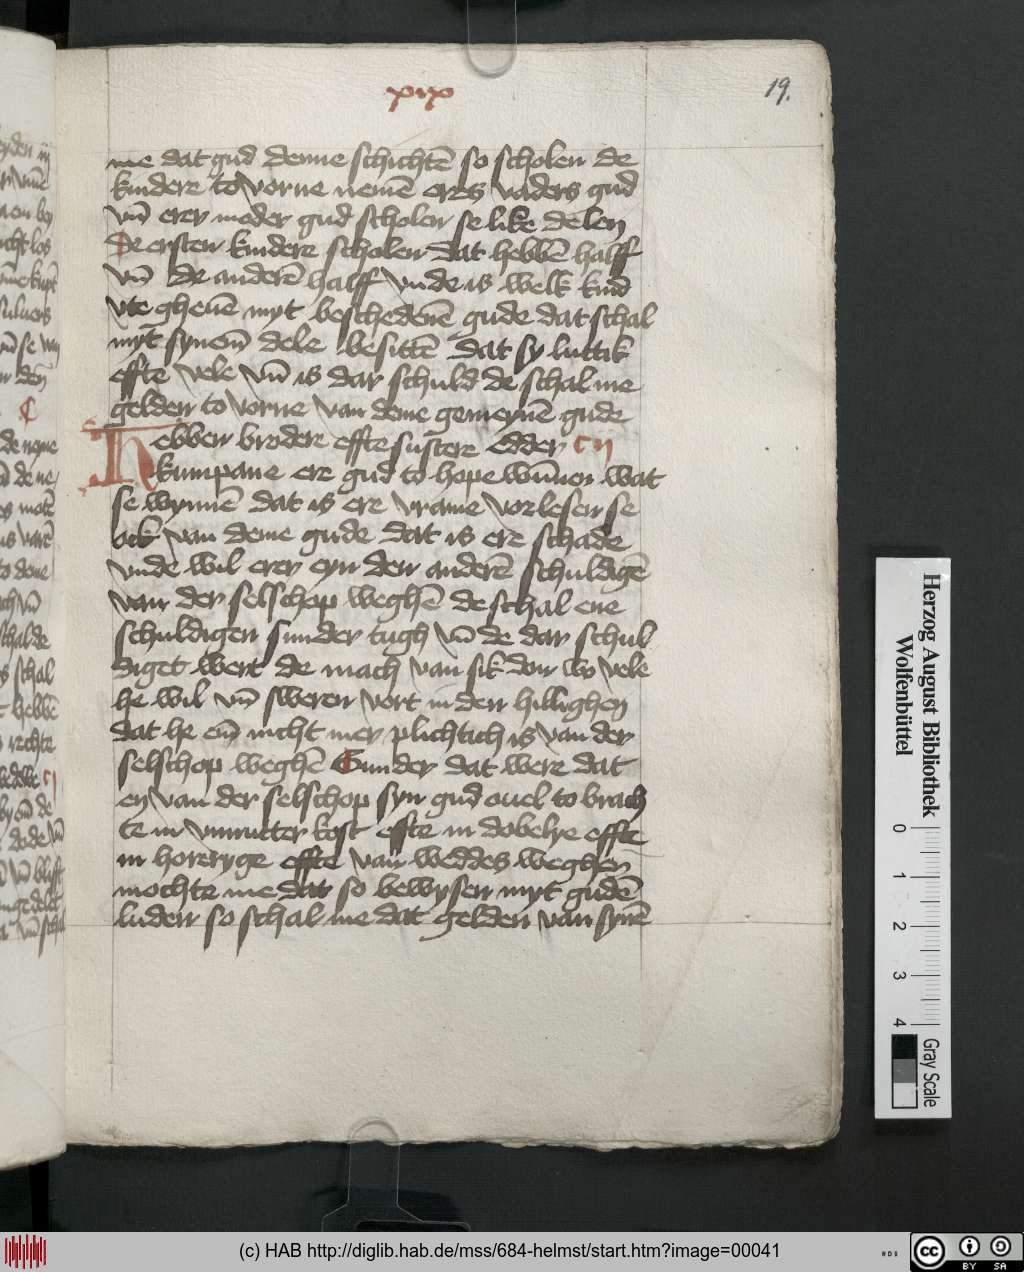 xix
19.
me dat gud denne schichtē so scholen de
kindere to vorne nemē eres vaders gud
vn̄ erer moder gud scholen se like delen
De ersten kindere scholen dat hebbē halff
vn̄ de anderē halff vnde is welk kind
vte gheuē myt beschedenē gude dat schal
myt synem̄ dele besittē dat sy luttik
effte vele vn̄ is dar schuld de schal me
gelden to vorne van deme gemeynē gude
Hebben brodere effte sustere edder cij
kumpane ere gud to hope wn̄nen wat
se wynnē dat is ere vrame vorlesen se
ock van deme gude dat is ere schade
vnde wil erer eyn den anderē schuldigē
van der selschop weghē de schal ene
schuldigen sunder tugh vn̄ de dar schul
diget wert de mach van sik don wo vele
he wil vn̄ sweren vort in den hillighen
dat he em̄ nicht mer plichtich is van der
selschop weghē Sunder dat were dat
en van der selschop syn gud ouel to brach
te in vnnutter kost effte in dobelye effte
in horeryge effte van weddes weghen
mochte me dat so bewysen myt gudē
luden so schal me dat gelden van synē
Herzog August Bibliothek
Wolfenbüttel
0 1 2 3 4
Gray Scale
(c) HAB http://diglib.hab.de/mss/684-helmst/start.htm?image=00041
cc BY SA